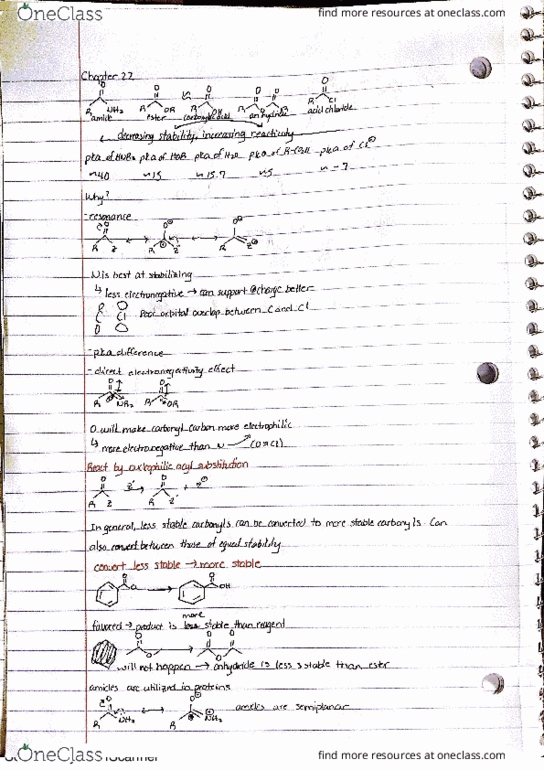 OneClass
find more resources at oneclass.com
Chapter 22
O O O O O O
R NH₂ R OR R OH R O R R Cl
amide ester carboxylic acid anhydride acid chloride
decreasing stability, increasing reactivity
pka of HNR₂ pka of HOR pka of H₂O pka of pka of Cl⊖
~40 ~15 ~15.7 ~5 ~-7
Why?
-resonance
R Z R Z R Z⊕
N is best at stabilizing
↳ less electronegative → can support ⊕ charge better
C Cl Poor orbital overlap between C and Cl
- pka difference
- direct electronegativity effect
R NR₂ R OR
O will make carbonyl carbon more electrophilic
↳ more electronegative than N (O≈Cl)
React by nucleophilic acyl substitution
R Z → R Z' + Z⊖
In general, less stable carbonyls can be converted to more stable carbonyls. Can
also convert between those of equal stability
convert less stable → more stable
O Cl → O OH
more
favored → product is less stable than reagent
will not happen → anhydride is less stable than ester
amides are utilized in proteins
R NH₂ ↔ R NH₂ amides are semiplanar
OneClass
find more resources at oneclass.com